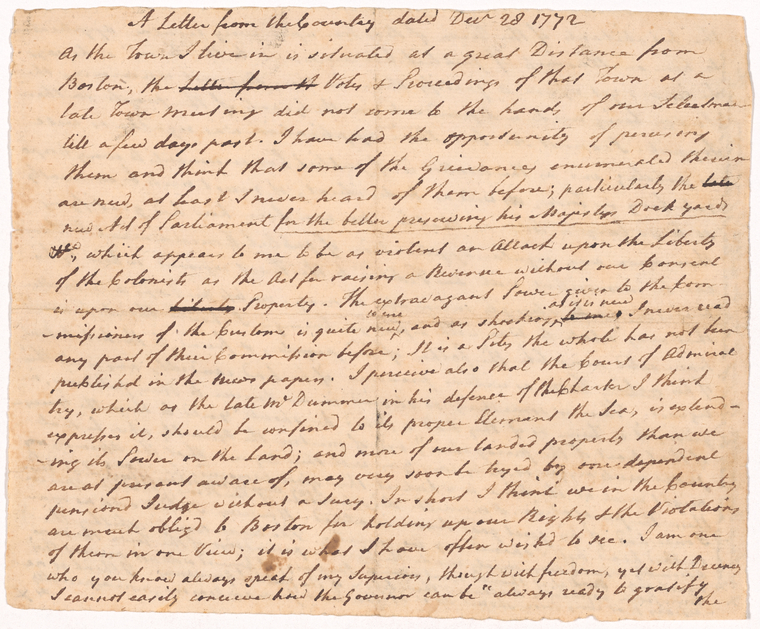 A Letter from the Country dated Decr 28 1772
As the Town I live in is situated at a great Distance from
Boston, the Letter from th Votes & Proceedings of that Town at a
late Town meeting did not come to the hands of our Selectmen
till a few days past. I have had the opportunity of perusing
them and think that some of the Grievances enumerated therein
are new, at least I never heard of them before; particularly the late
new Act of Parliament for the better preserving his Majestys Dock yards
&c, which appears to me to be as violent an Attack upon the Liberty
of the Colonists as the Act for raising a Revenue without our Consent
is upon our Liberty Property. The extravagant Power given to the Com
-missioners of the Customs is quite new to me, and as shocking as it is new to me, I never read
any part of their Commission before; It is a Pity the whole has not been
publishd in the news papers. I perceive also that the Court of Admiral
try, which as the late Mr Dummer in his defence of the Charter I think
expresses it, should be confined to its proper Element the Sea, is extend-
-ing its Power on the Land; and more of our landed property than we
are at present aware of, may very soon be tryed by one dependent
pensiond Judge without a Jury. In short I think we in the Country
are much obligd to Boston for holding up our Rights & the Violations
of them in one View; it is what I have often wishd to see. I am one
who you know always speak of my Superiors, though with freedom, yet with Decency
I cannot easily conceive how the Governor can be "always ready to gratify
the